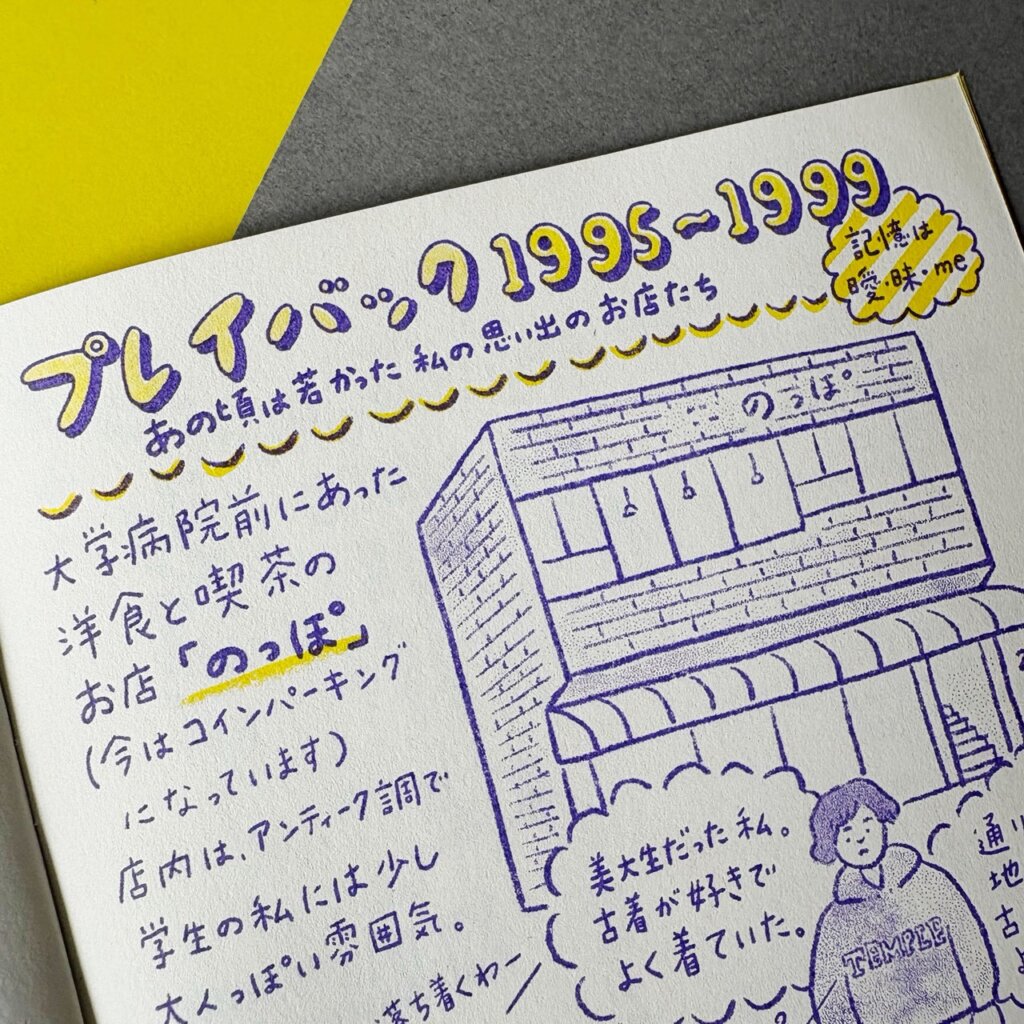 プレイバック1995~1999
記憶は
曖・昧・me
あの頃は若かった私の思い出のお店たち
のっぽ
大学病院前にあった
洋食と喫茶の
お店「のっぽ」
(今はコインパーキング
になっています)
店内は、アンティーク調で
学生の私には少し
大人っぽい雰囲気。
落ち着くわー
美大生だった私。
古着が好きで
よく着ていた。
TEMPLE
通り
地
古